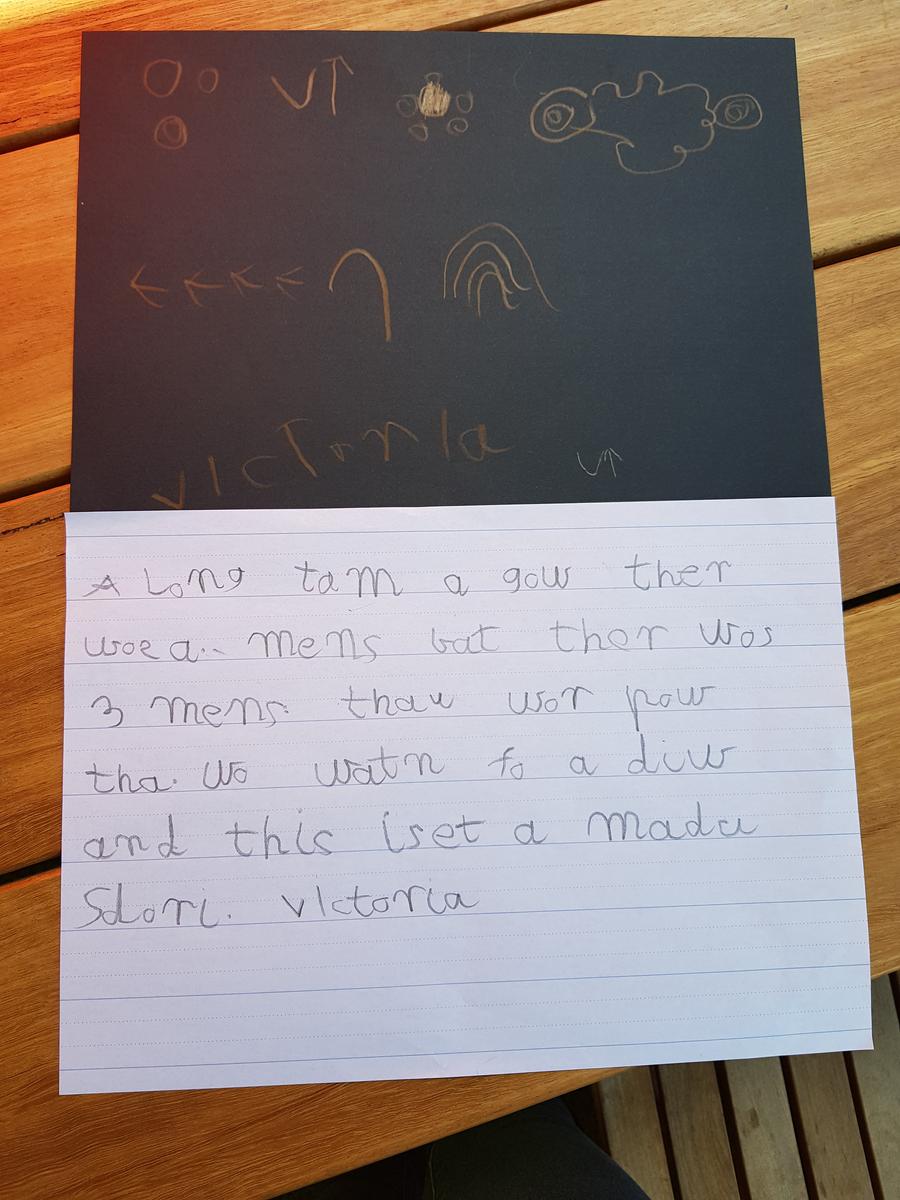 victoria
A Long tam a gow ther
woe a.. mens bat ther wos
3 mens. thau wor pow
tha. wo watn fo a diw
and this iset a madu
Sdori. vIctoria